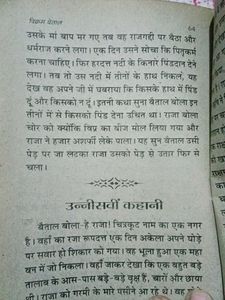 विक्रम वैताल
64
उसके मां बाप मर गए तब वह राजगद्दी पर बैठा और
धर्मराज करने लगा। एक दिन उसने सोचा कि पितृकर्म
करना चाहिए। फिर हरदत्त नदी के किनारे पिंडदान देने
लगा। तब तो उस नदी में तीनों के हाथ निकले, यह
देख वह अपने जी में घबराया कि किसके हाथ में पिंड
दूं और किसको न दूं। इतनी कथा सुना बैताल बोला इन
तीनों में से किसको पिंड देना उचित था। राजा बोला
चोर को क्योंकि विप्र का बीज मोल लिया गया और
राजा ने हजार अशर्फी लेके पाला। यह सुन बैताल उसी
पेड़ पर जा लटका राजा उसको पेड़ से उतार फिर से
चला।
उन्नीसवीं कहानी
बैताल बोला-हे राजा! चित्रकूट नाम का एक नगर
है। वहां का रजा रूपदत्त एक दिन अकेला अपने घोड़े
पर सवार हो शिकार को गया। वह भूला हुआ एक महा
वन में जो निकला। वहाँ जाकर देखा कि एक बहुत बड़े
तालाब के आस-पास बड़े-बड़े वृक्ष हैं, चारों और छाया
थी। राजा को गरमी के मारे पसीने आ रहे थे। वह